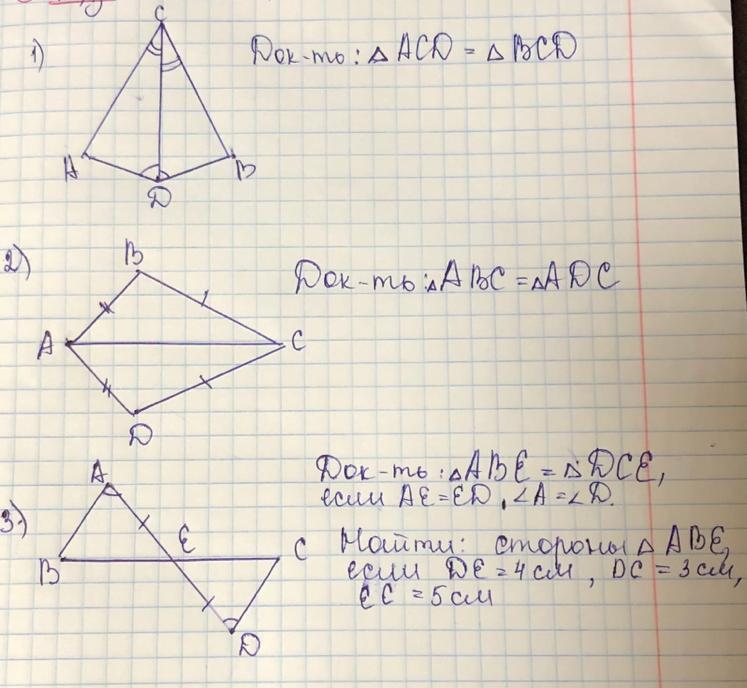 1)
C
A
B
D
Док-ть: △ ACD = △ BCD
2)
B
A
C
D
Док-ть: △ABC = △ADC
3.)
A
E
B
C
D
Док-ть: △ABE = △DCE,
если AE=ED, ∠A=∠D.
Найти: стороны △ ABE,
если DE=4см, DC=3см,
EC=5см